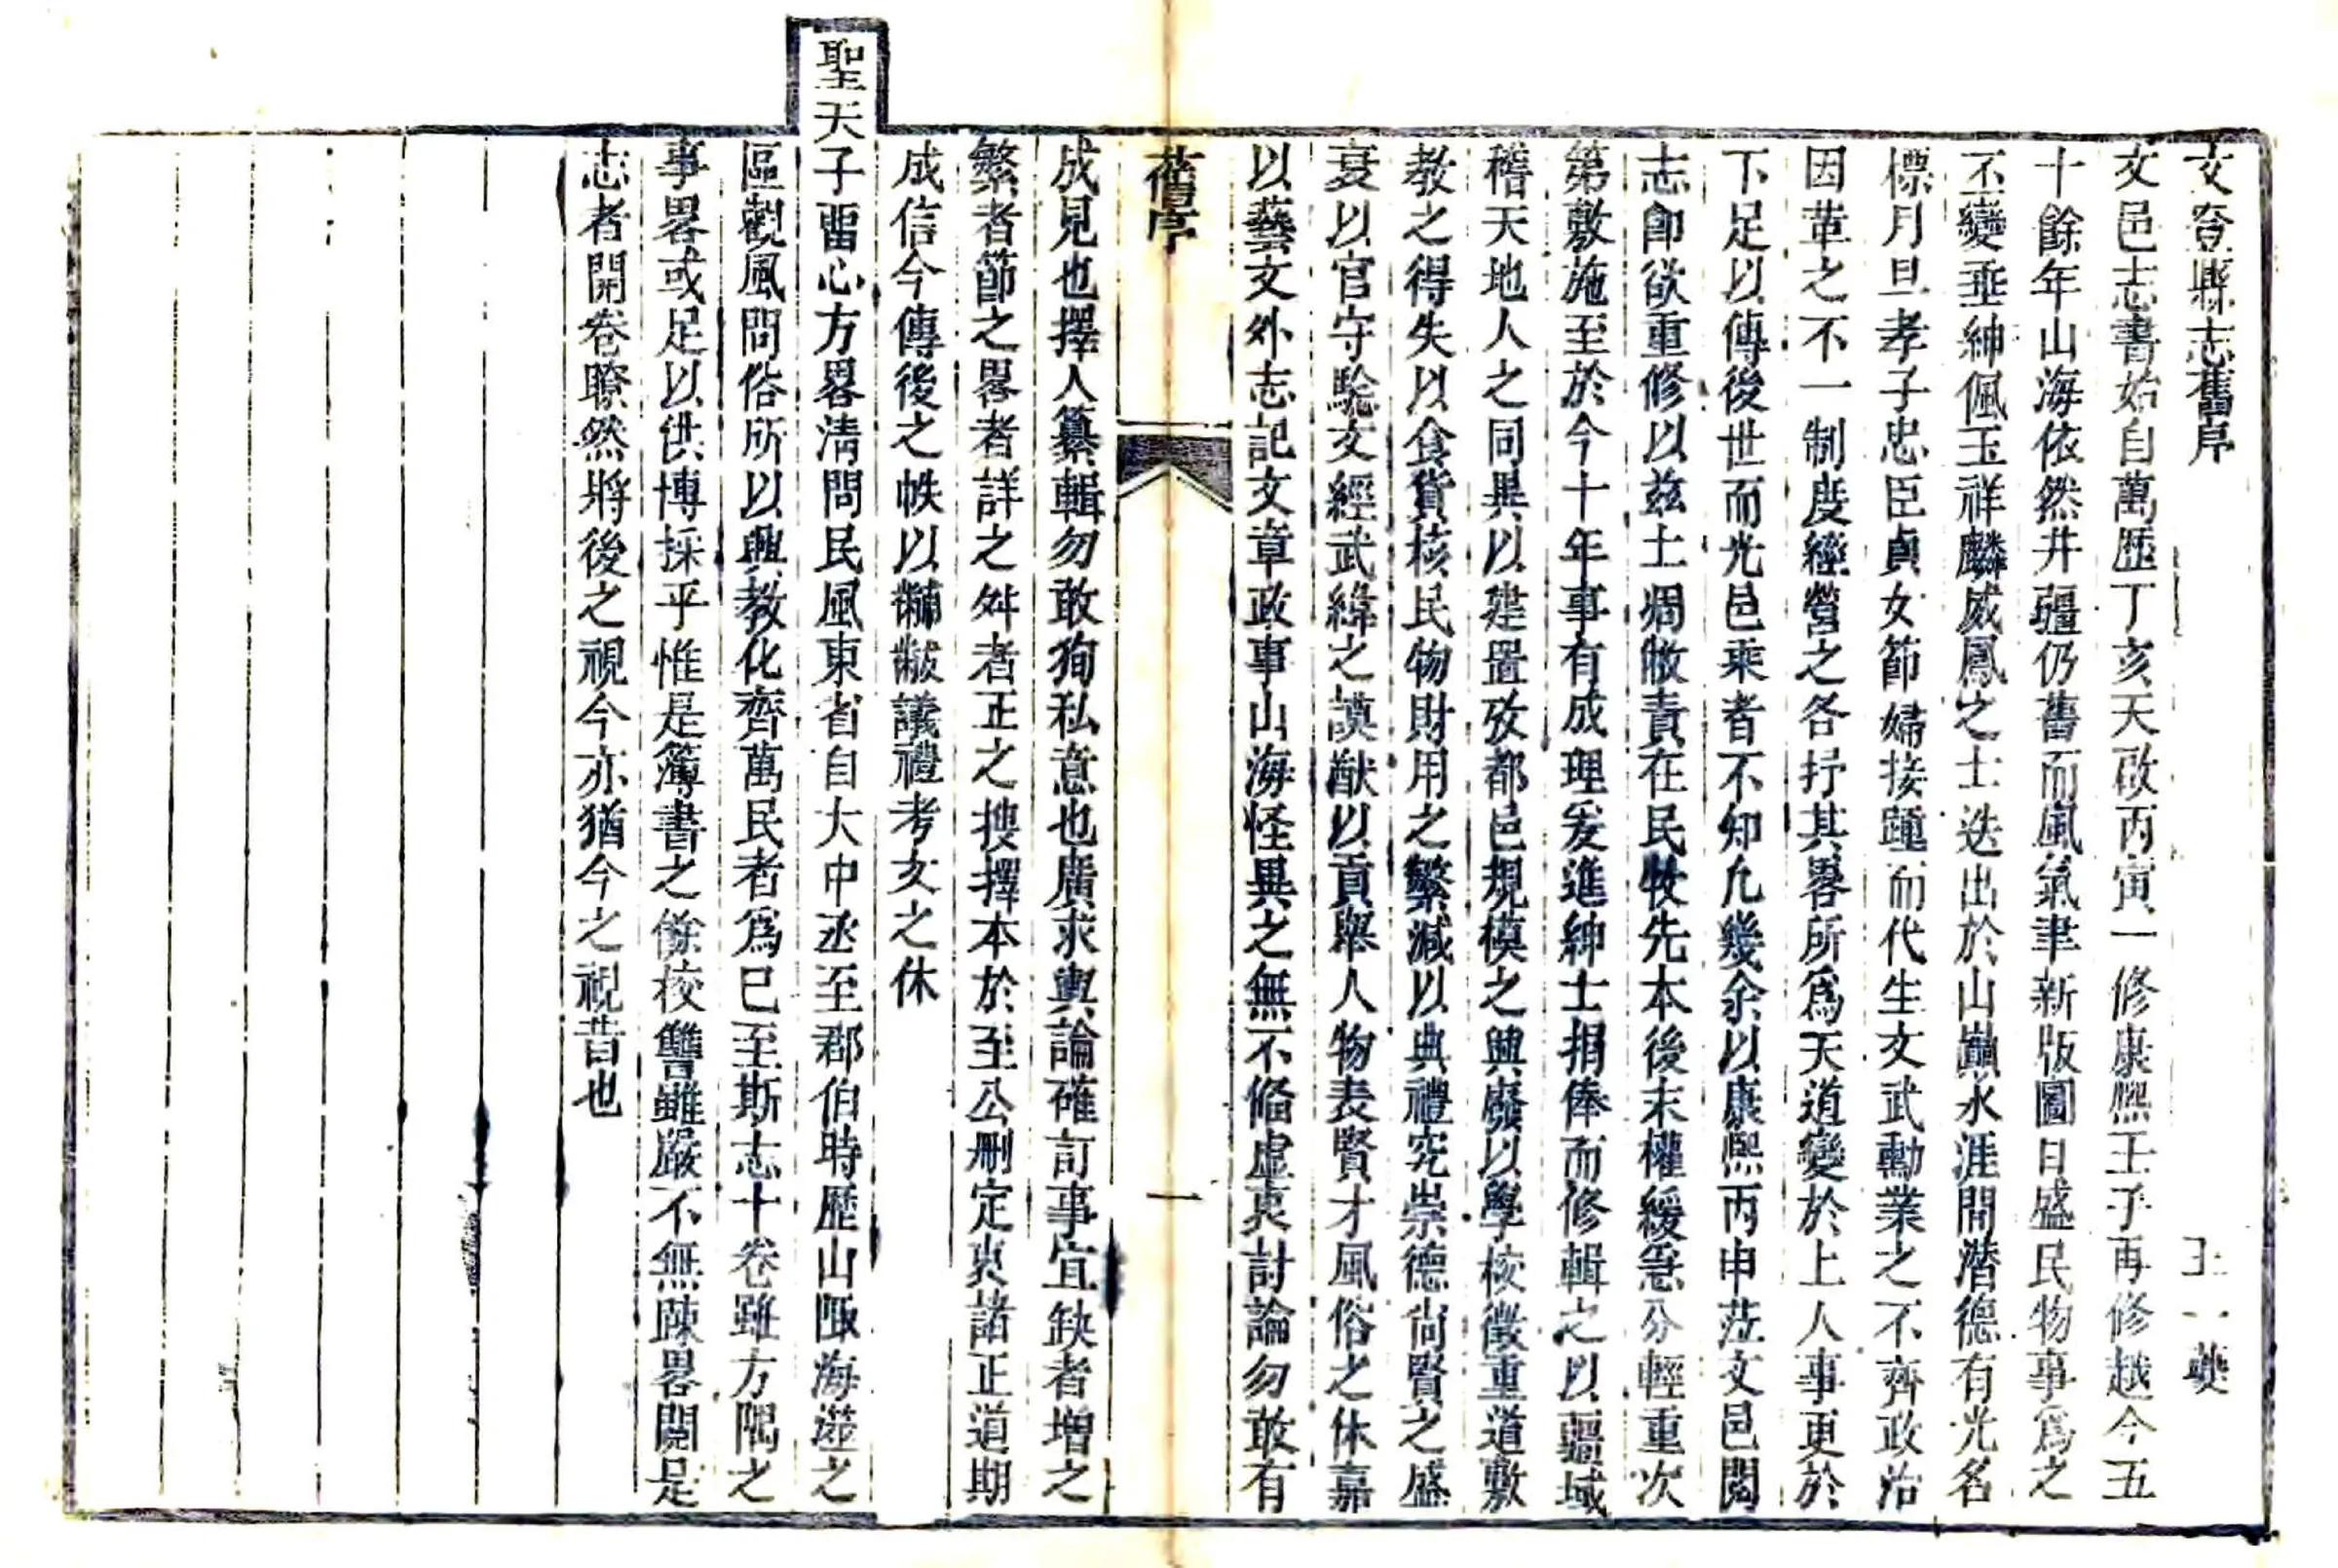 文登縣志舊序 王一夔
文邑志書始自萬歷丁亥天啟丙寅一修康熙壬子再修越今五
十餘年山海依然井疆仍舊而風氣聿新版圖日盛民物事爲之
丕變垂紳佩玉祥麟威鳳之士迭出於山巔水涯間潜德有光名
標月旦孝子忠臣貞女節婦接踵而代生文武勳業之不齊政治
因革之不一制度經營之各抒其畧所爲天道變於上人事更於
下足以傳後世而光邑乘者不知凢幾余以康熙丙申蒞文邑閱
志卽欲重修以茲土凋敝責在民牧先本後末權緩急分輕重次
第敷施至於今十年事有成理爰進紳士捐俸而修輯之以疆域
稽天地人之同異以建置攷都邑規模之興廢以學核徵重道敷
教之得失以食貨核民物財用之繁減以典禮究崇德尚賢之盛
衰以官守騐文經武緯之謨猷以貢舉人物表賢才風俗之休嘉
以藝文外志記文章政事山海怪異之無不俻虛衷討論勿敢有
舊序 一
成見也擇人纂輯勿敢狥私意也廣求輿論確訂事宜缺者增之
繁者節之畧者詳之舛者正之搜擇本於至公刪定衷諸正道期
成信今傳後之帙以黼黻議禮考文之休
聖天子畱心方畧清問民風東省自大中丞至郡伯時歷山陬海澨之
區觀風問俗所以興教化齊萬民者爲巳至斯志十卷雖方隅之
事畧或足以供博採乎惟是簿書之餘校讐雖嚴不無踈畧閱是
志者開卷瞭然將後之視今亦猶今之視昔也